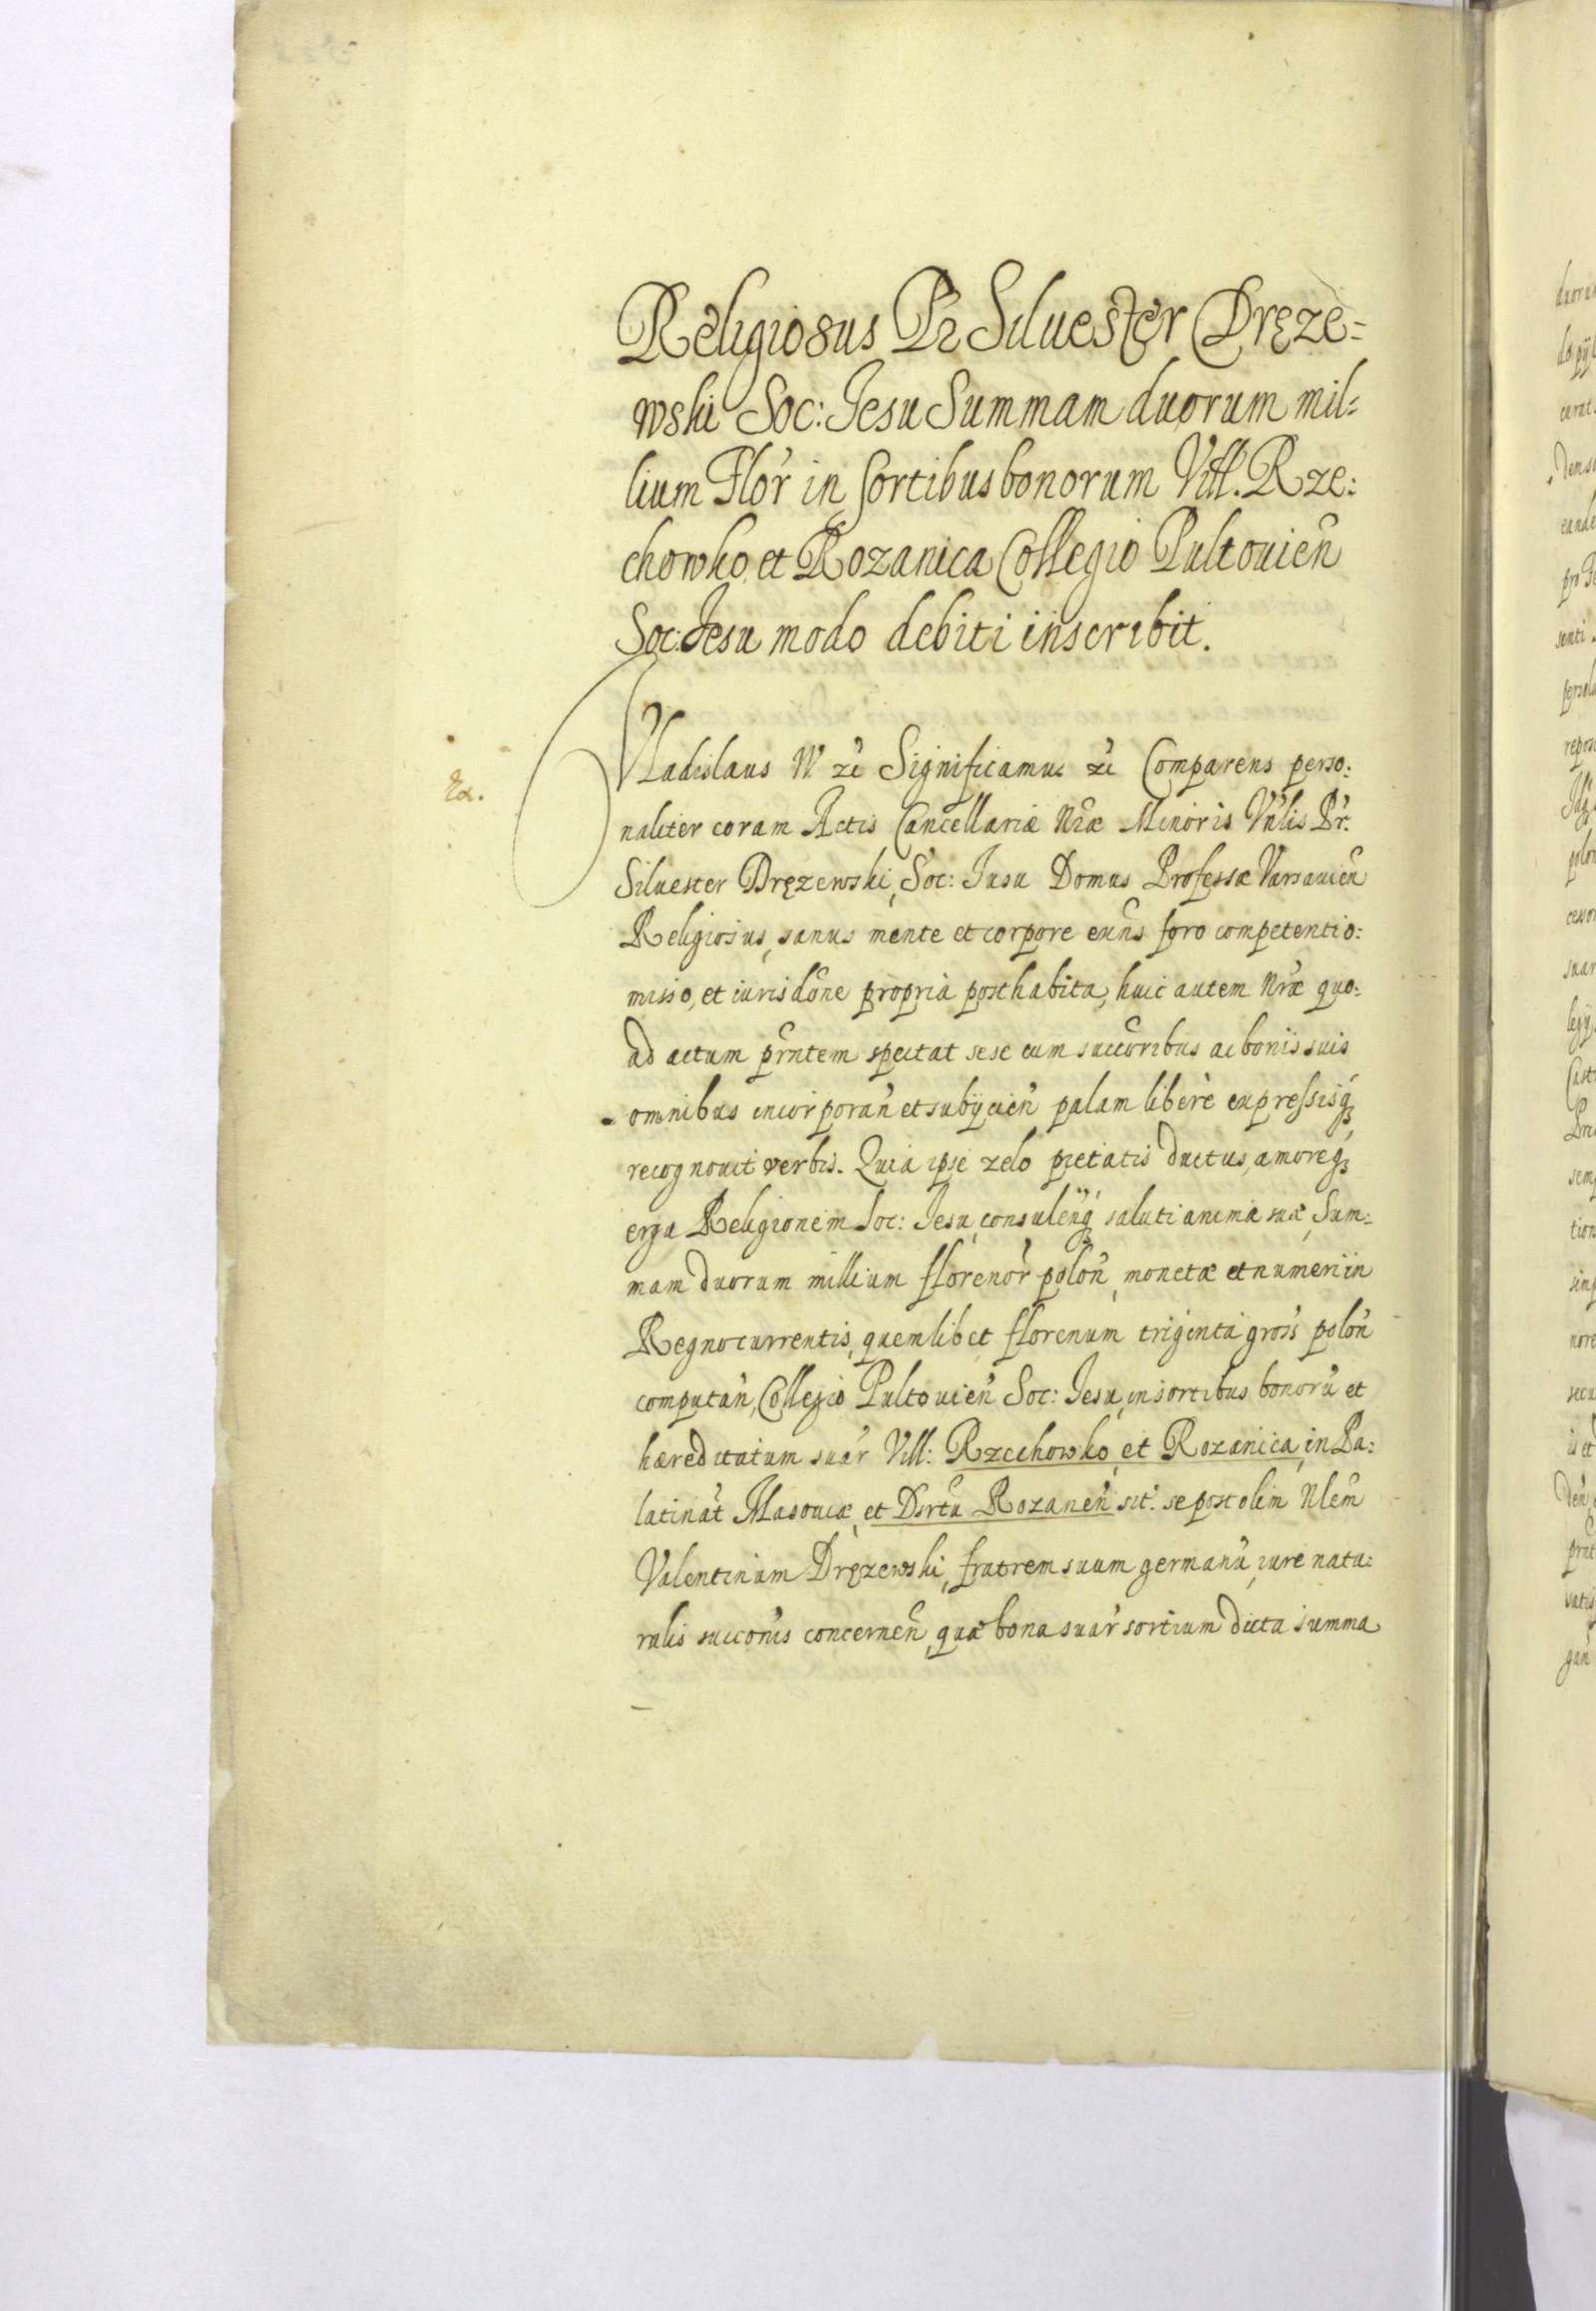 Religiosus Pr Siluester Dręze=
wski Soc: Jesu Summam duorum mil=
lium Flor̃ in sortibus bonorum Vill. Rze:
chowko et Rozanica Collegio Pultouien̄
Soc: Jesu modo debiti inscribit.
Vladislaus IV etc̃ Significamus etc̃ Comparens perso:
naliter coram Actis Cancellariæ Nr̃æ Minoris Vn̄lis Pr.
Siluester Dręzewski, Soc: Jesu Domus Professæ Varsauien̄
Religiosus, sanus mente et corpore exn̄s foro competenti o:
misso, et iurisdōne propriâ posthabita, huic autem Nr̃æ quo:
ad actum pr̄ntem spectat sese cum succōribus ac bonis suis
omnibus incorporan̄ et subijcien̄ palam liberè expressisq́ꝫ
recognouit verbis. Quia ipse zelo pietatis ductus, amoreqꝫ
erga Religionem Soc: Jesu, consulen̄qꝫ saluti animæ suæ, Sum:
mam duorum millium florenor̃ polon̄, monetæ et numeri in
Regno currentis, quemlibet florenum triginta gross̃ polon̄
computan̄, Collegio Pultouien̄ Soc: Jesu, in sortibus bonorū et
hæreditatum suar̃ Vill: Rzechowko et Rozanica, in Pa:
latinat̃ Masouiæ, et Dsrtū Rozanen̄ sit̃. se post olim Nlem̄
Valentinum Dręzewski, fratrem suum germanū, iure natu:
ralis succōnis concernen̄, quæ bona suar̃ sortium dicta summa